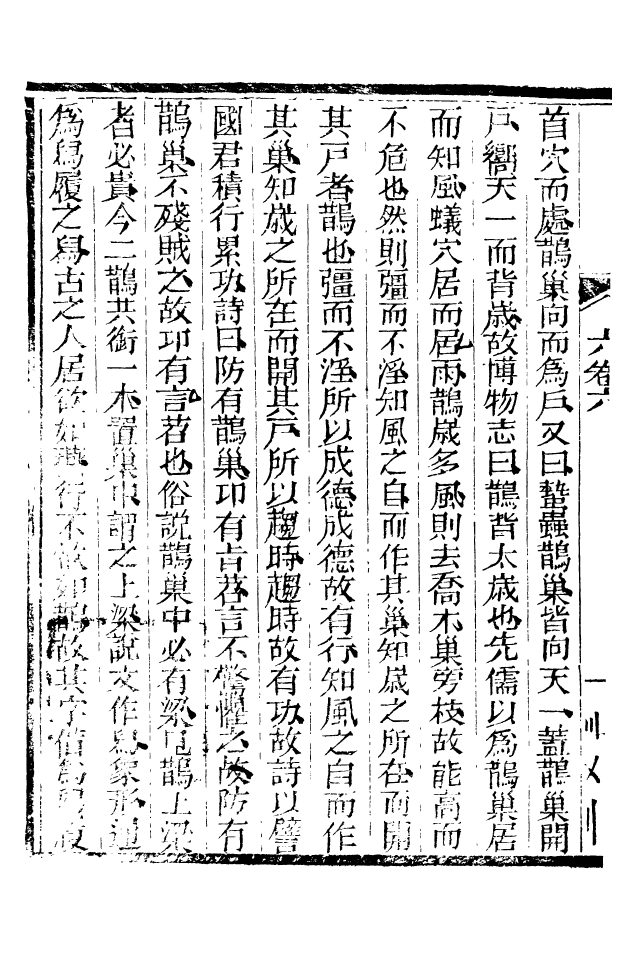 首穴而處鵲巢向而為戶又曰蟄蟲鵲巢皆向天一蓋鵲巢開
戶嚮天一而背歲故博物志曰鵲背太歲也先儒以為鵲巢居
而知風蟻穴居而居雨鵲歲多風則去喬木巢旁枝故能高而
不危也然則彊而不淫知風之自而作其巢知歲之所在而開
其戶者鵲也彊而不淫所以成德成德故有行知風之自而作
其巢知歲之所在而開其戶所以趨時趨時故有功故詩以譬
國君積行累功詩曰防有鵲巢卭有旨苕言不驚懼之故防有
鵲巢不殘賊之故卭有言苕也俗說鵲巢中必有梁見鵲上梁
者必貴今二鵲共銜一木置巢中謂之上梁說文作舄象形通
為舄履之舄古之人居欲如行不欲如鵲故其字借為履
卷六